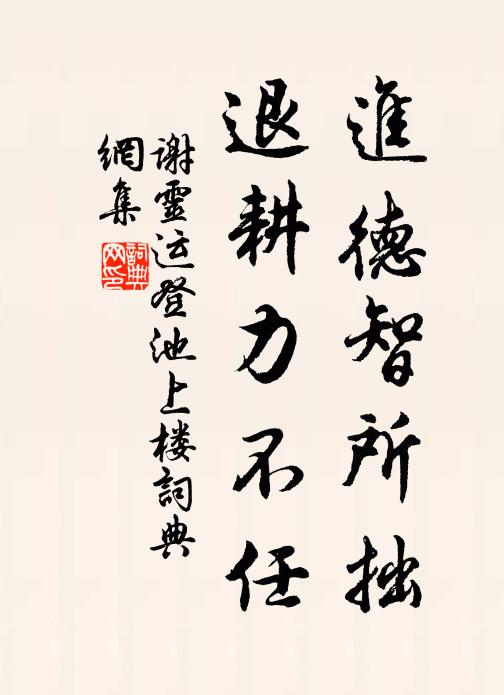 進德智所拙
退耕力不任
謝靈运登池上楼詞典
網集
詞典
网印